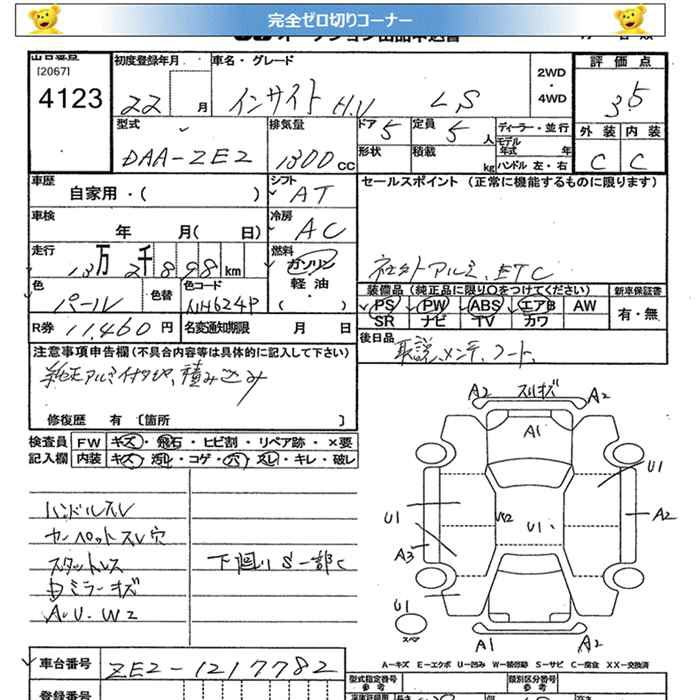 完全ゼロ切りコーナー
オークション出品申込書
出品番号
[2067]
4123
初度登録年月
22 月
車名・グレード
インサイト H.V LS
2WD
・
4WD
評価点
3.5
型式
DAA-ZE2
排気量
1300 CC
ドア 5
定員 5 人
形状
積載 kg
ディーラー・並行
モデル年式 年
ハンドル 左・右
外装 内装
C C
車歴
自家用・( )
シフト
AT
セールスポイント (正常に機能するものに限ります)
車検
年 月( 日)
冷房
AC
走行
13万2千898km
燃料
ガソリン
軽油
・
( )
社外アルミ、ETC
色
パール
色替
色コード
NH624P
装備品 (純正品に限り○をつけてください)
新車保証書
PS PW ABS エアB AW
SR ナビ TV カワ
有・無
R券 11,460円
名変通知期限 月 日
後日品
取説、メンテ、ノート、
注意事項申告欄 (不具合内容等は具体的に記入して下さい)
純正アルミ付タイヤ、積み込み
修復歴 有 〔箇所 〕
検査員 FW キズ・飛石・ヒビ割・リペア跡・×要
記入欄 内装 キズ・汚れ・コゲ・穴・スレ・キレ・破レ
ハンドルスレ
カーペットスレ穴
スタットレス
ミラーキズ
A.U.W2
下廻りS一部C
A2 スリキズ A2
A1
U1
U1
W2
U1
A2
A3
U1
スペア
A1
A2
A-キズ E-エクボ U-凹み W-補修跡 S-サビ C-腐食 XX-交換済
車台番号
ZE2-1217782
登録番号
型式指定番号
参考
類別区分番号
参考